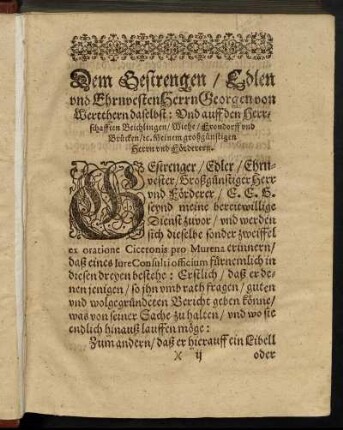 Dem Gestrengen / Edlen
vnd Ehrnvesten Herrn Georgen von
Werthern daselbst: Vnd auff den Herr-
schafften Beichlingen / Wiehe / Frondorff vnd
Brücken / ꝛc. Meinem großgünstigen
Herrn vnd Förderern.
GEstrenger / Edler / Ehrn-
vester / Großgünstiger Herr
vnd Förderer / E. E. G.
seynd meine bereitwillige
Dienst zuvor / vnd werden
sich dieselbe sonder zweiffel
ex oratione Ciceronis pro Murena erinnern /
daß eines Iure Consulti officium fürnemlich in
diesen dreyen bestehe: Erstlich / daß er de-
nen jenigen / so jhn vmb rath fragen / guten
vnd wolgegründeten Bericht geben könne /
was von seiner Sache zu halten / vnd wo sie
endlich hinauß lauffen möge:
Zum andern / daß er hierauff ein Libell
)( ij oder